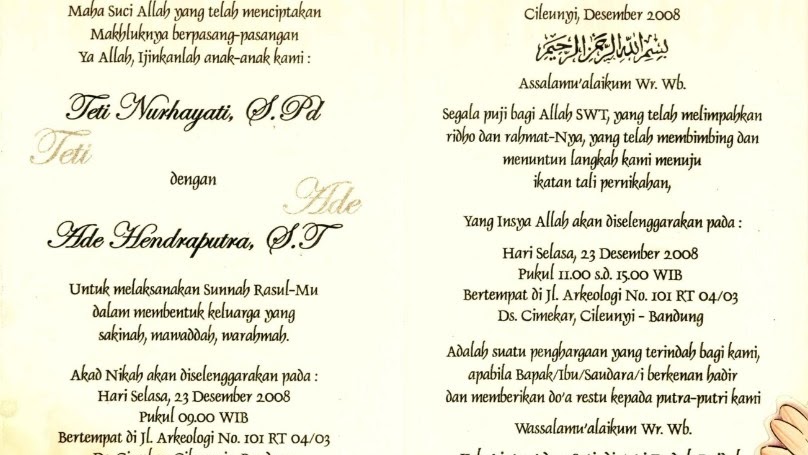 Maha Suci Allah yang telah menciptakan
Makhluknya berpasang-pasangan
Ya Allah, Ijinkanlah anak-anak kami :
Teti Nurhayati, S.Pd
Teti
dengan
Ade
Ade Hendraputra, S.T
Untuk melaksanakan Sunnah Rasul-Mu
dalam membentuk keluarga yang
sakinah, mawaddah, warahmah.
Akad Nikah akan diselenggarakan pada :
Hari Selasa, 23 Desember 2008
Pukul 09.00 WIB
Bertempat di Jl. Arkeologi No. 101 RT 04/03
Cileunyi, Desember 2008
بسم الله الرحمن الرحيم
Assalamu'alaikum Wr. Wb.
Segala puji bagi Allah SWT, yang telah melimpahkan
ridho dan rahmat-Nya, yang telah membimbing dan
menuntun langkah kami menuju
ikatan tali pernikahan,
Yang Insya Allah akan diselenggarakan pada :
Hari Selasa, 23 Desember 2008
Pukul 11.00 s.d. 15.00 WIB
Bertempat di Jl. Arkeologi No. 101 RT 04/03
Ds. Cimekar, Cileunyi - Bandung
Adalah suatu penghargaan yang terindah bagi kami,
apabila Bapak/Ibu/Saudara/i berkenan hadir
dan memberikan do'a restu kepada putra-putri kami
Wassalamu'alaikum Wr. Wb.